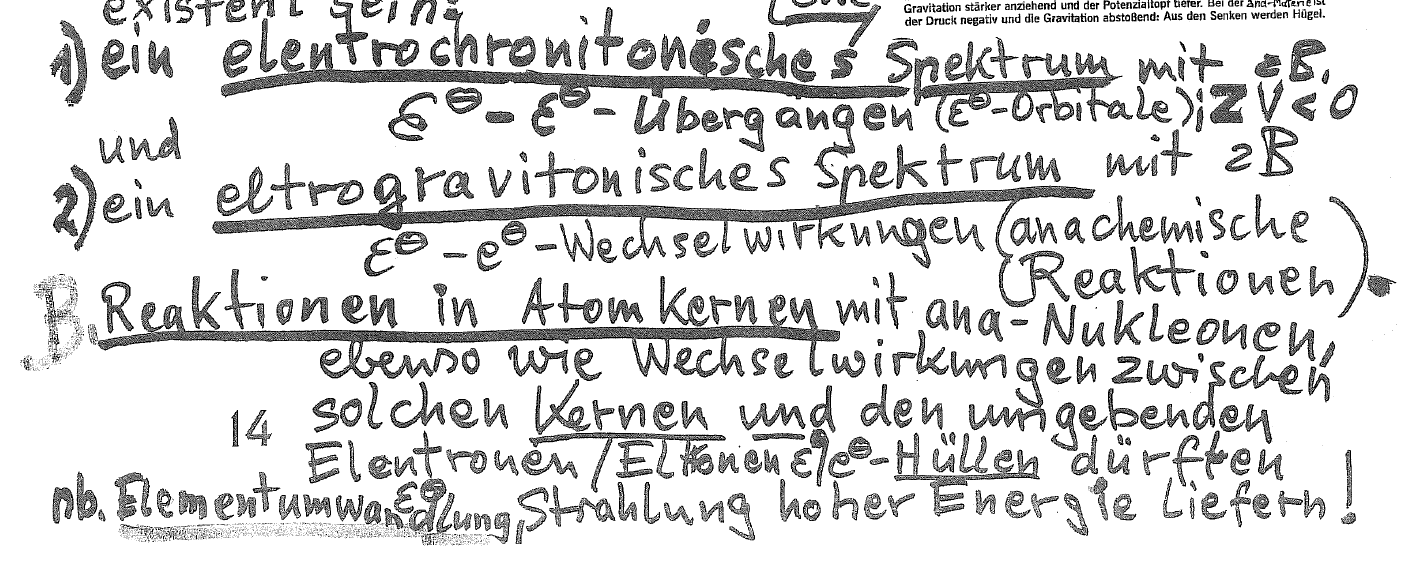 existent sein:
Gravitation stärker anziehend und der Potenzialtopf tiefer. Bei der Ana-Materie ist
der Druck negativ und die Gravitation abstoßend: Aus den Senken werden Hügel.
1) ein elentrochronitonisches Spektrum mit zB.
ε⊖ - ε⊖ - Übergängen (ε⊖-Orbitale); Z V < 0
und
2) ein eltrogravitonisches Spektrum mit zB
ε⊖ - e⊖ - Wechselwirkungen (anachemische
Reaktionen).
B. Reaktionen in Atomkernen mit ana-Nukleonen,
ebenso wie Wechselwirkungen zwischen
solchen Kernen und den umgebenden
14
Elentronen/Eltronen ε⊖/e⊖-Hüllen dürften
nb. Elementumwandlung, Strahlung hoher Energie liefern!